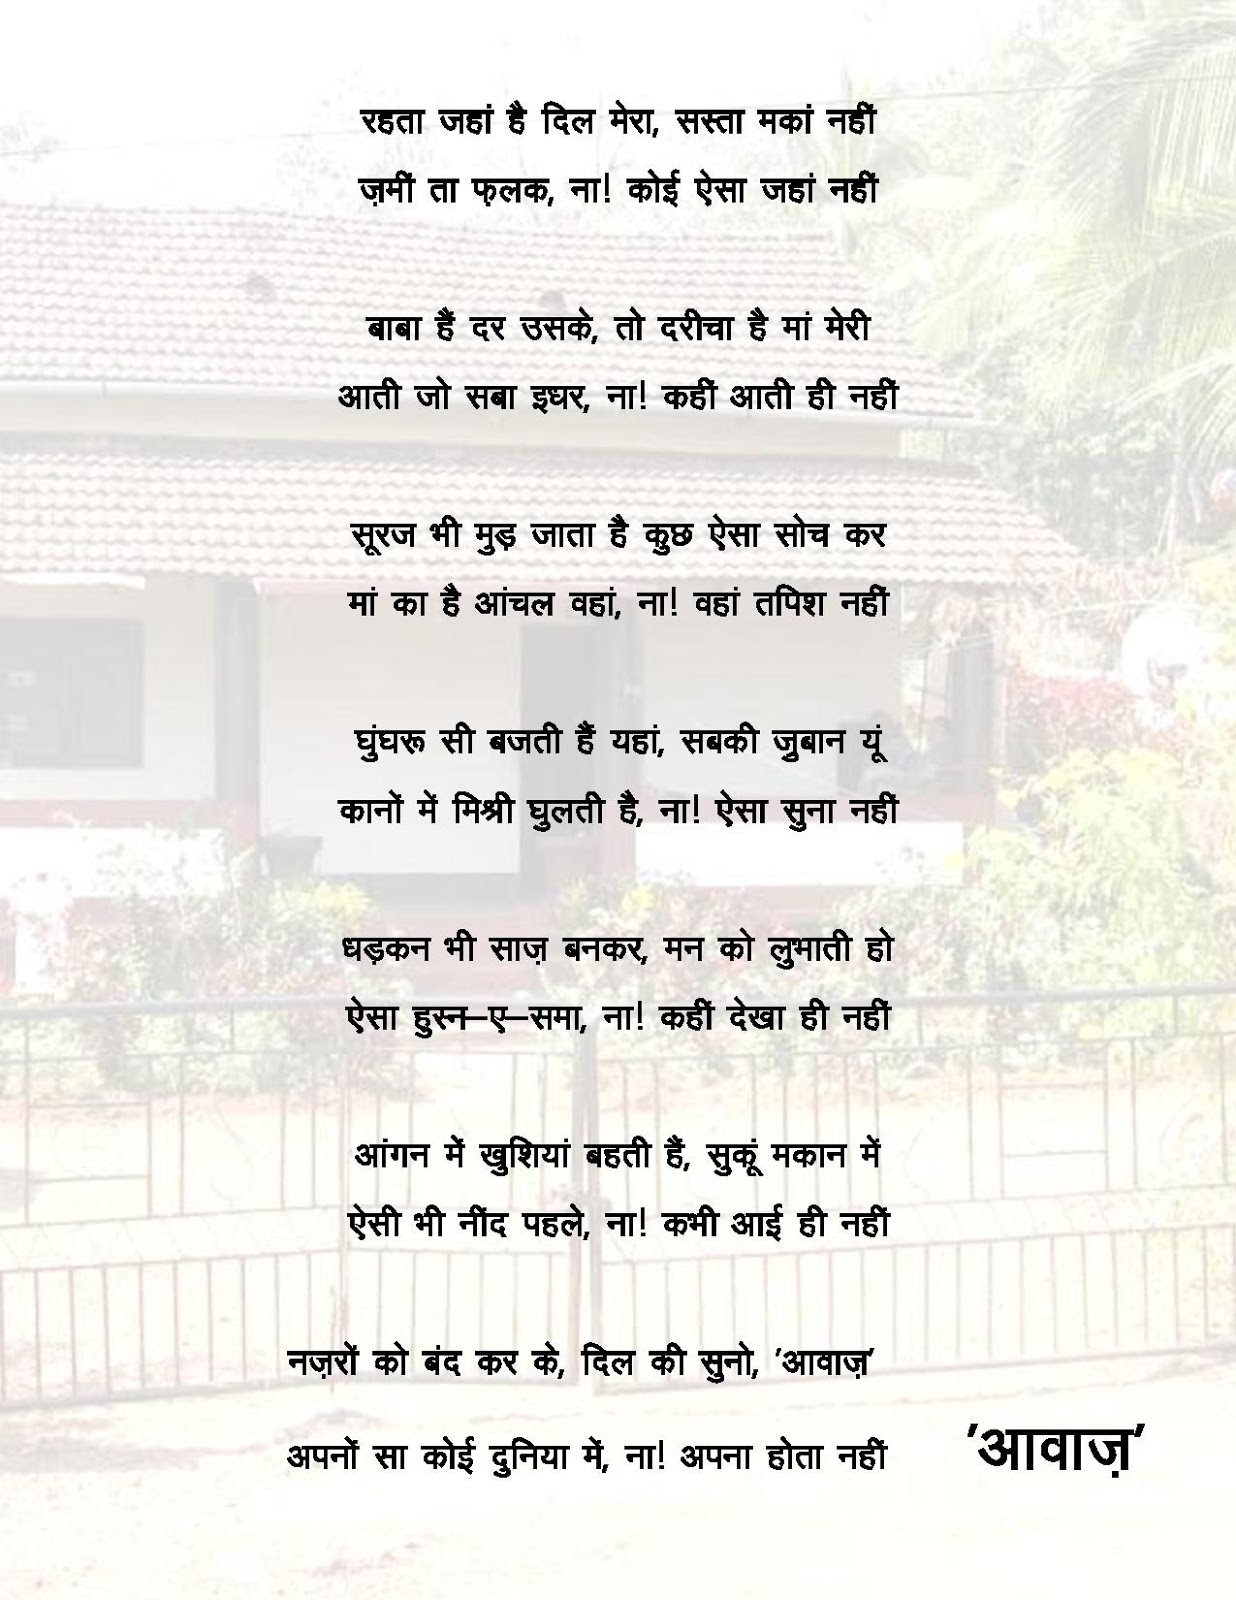 रहता जहां है दिल मेरा, सस्ता मकां नहीं
ज़मीं ता फ़लक, ना! कोई ऐसा जहां नहीं
बाबा हैं दर उसके, तो दरीचा है मां मेरी
आती जो सबा इधर, ना! कहीं आती ही नहीं
सूरज भी मुड़ जाता है कुछ ऐसा सोच कर
मां का है आंचल वहां, ना! वहां तपिश नहीं
घुंघरू सी बजती हैं यहां, सबकी जुबान यूं
कानों में मिश्री घुलती है, ना! ऐसा सुना नहीं
धड़कन भी साज़ बनकर, मन को लुभाती हो
ऐसा हुस्न–ए–समा, ना! कहीं देखा ही नहीं
आंगन में खुशियां बहती हैं, सुकूं मकान में
ऐसी भी नींद पहले, ना! कभी आई ही नहीं
नज़रों को बंद कर के, दिल की सुनो, 'आवाज़'
अपनों सा कोई दुनिया में, ना! अपना होता नहीं
'आवाज़'